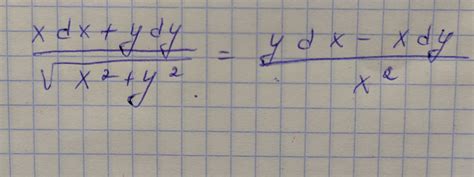 (x dx + y dy) / √(x² + y²) = (y dx − x dy) / x²